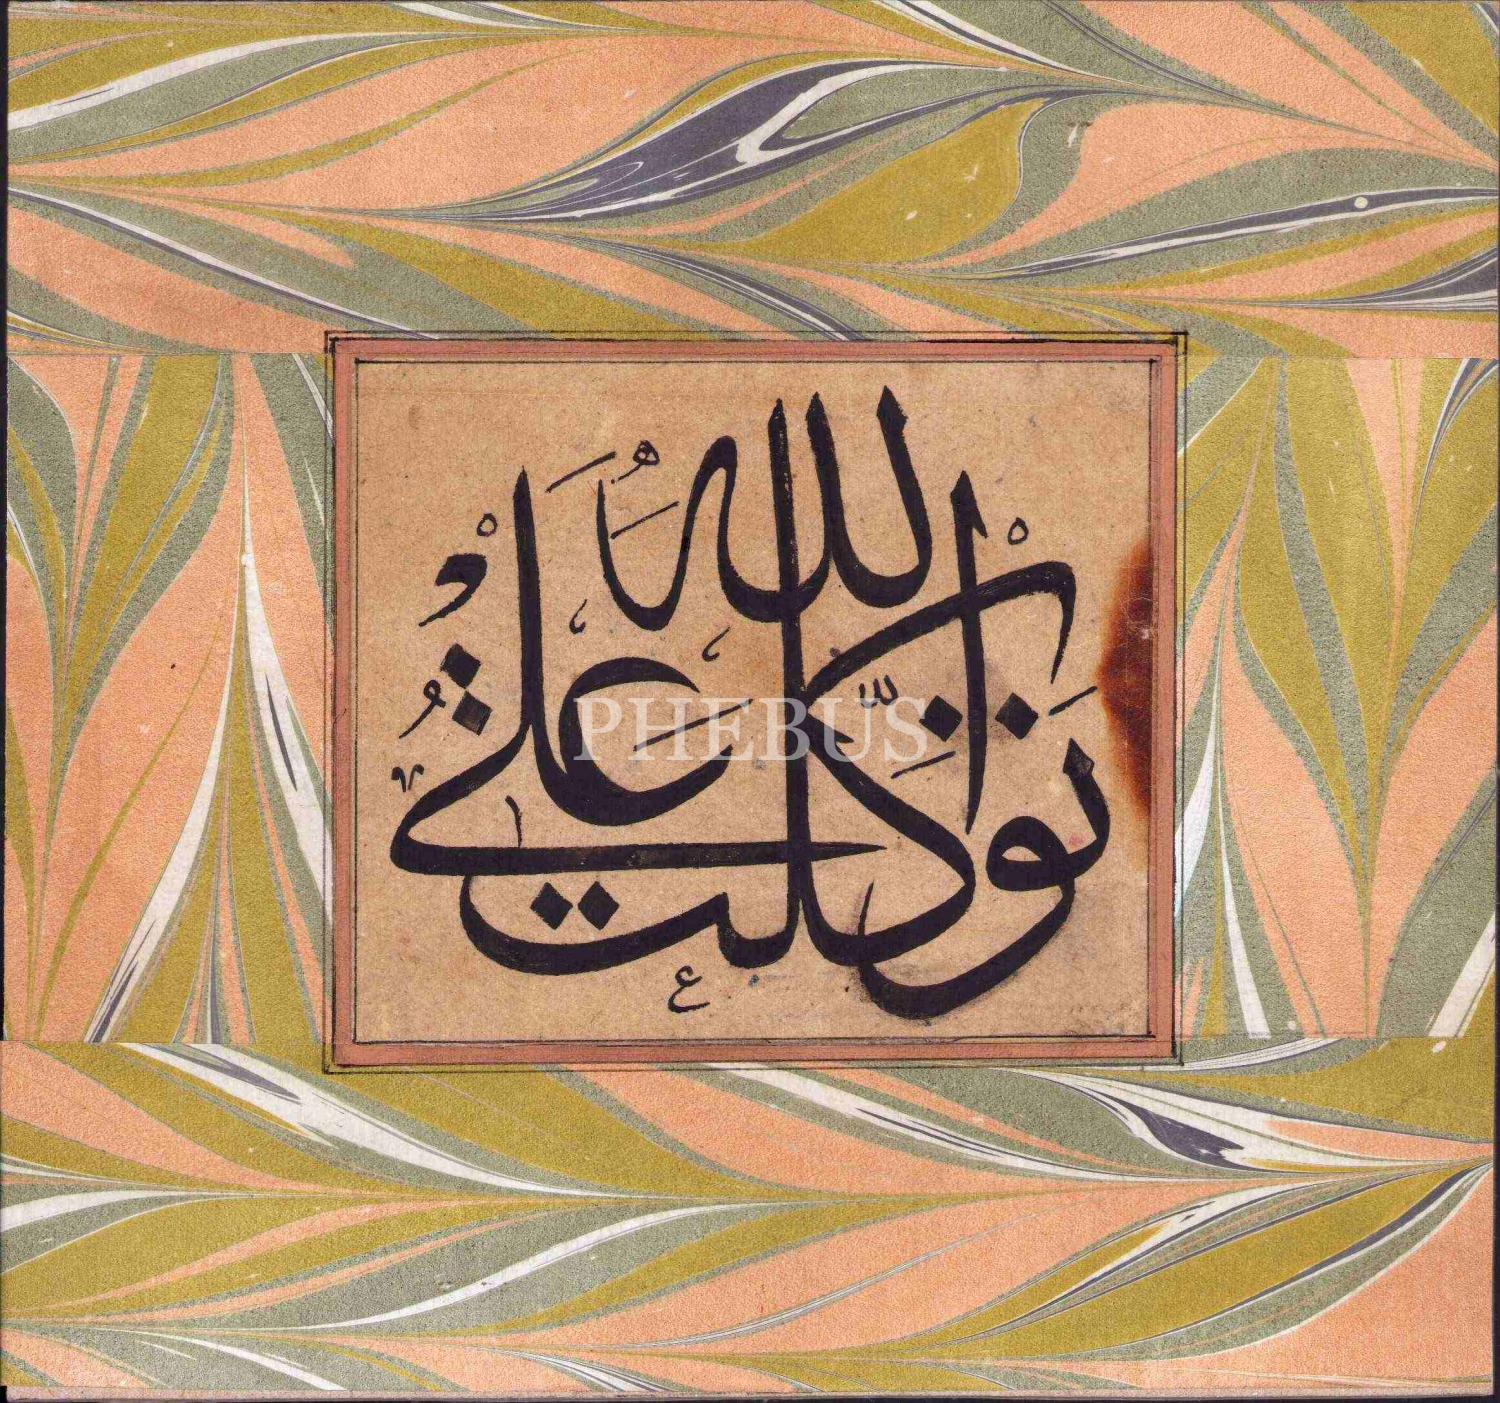 توكلت على الله
PHEBUS